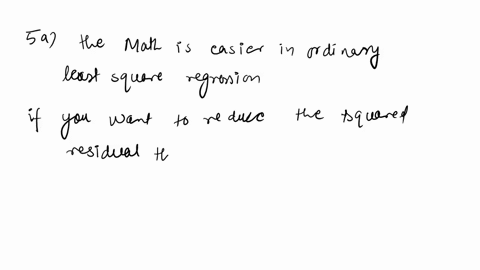 5a) the Math is easier in ordinary
least square regression
if you want to reduce the squared
residual t